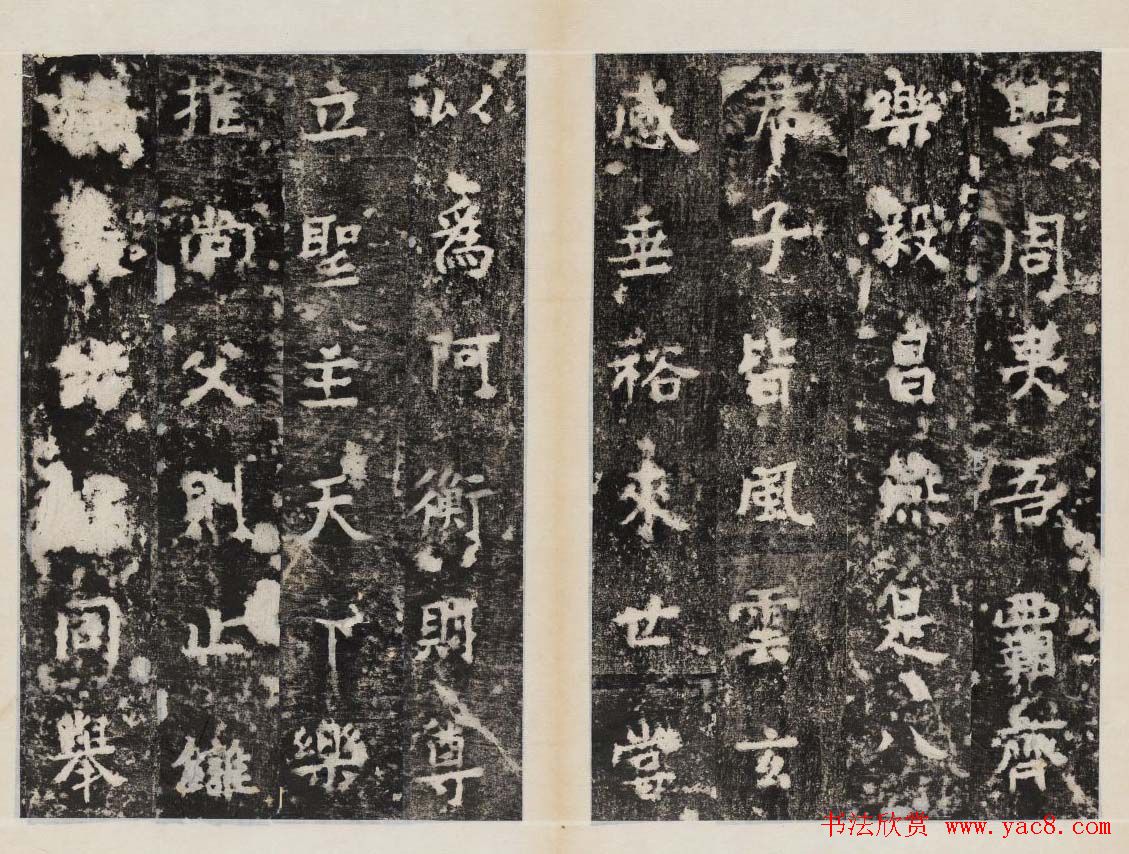 興周夷吾霸齊
樂毅昌燕是八
君子皆風雲玄
感垂裕來世嘗
以為阿衡則尊
立聖主天下樂
推尚父則止讎
同舉
书法欣赏 www.yac8.com